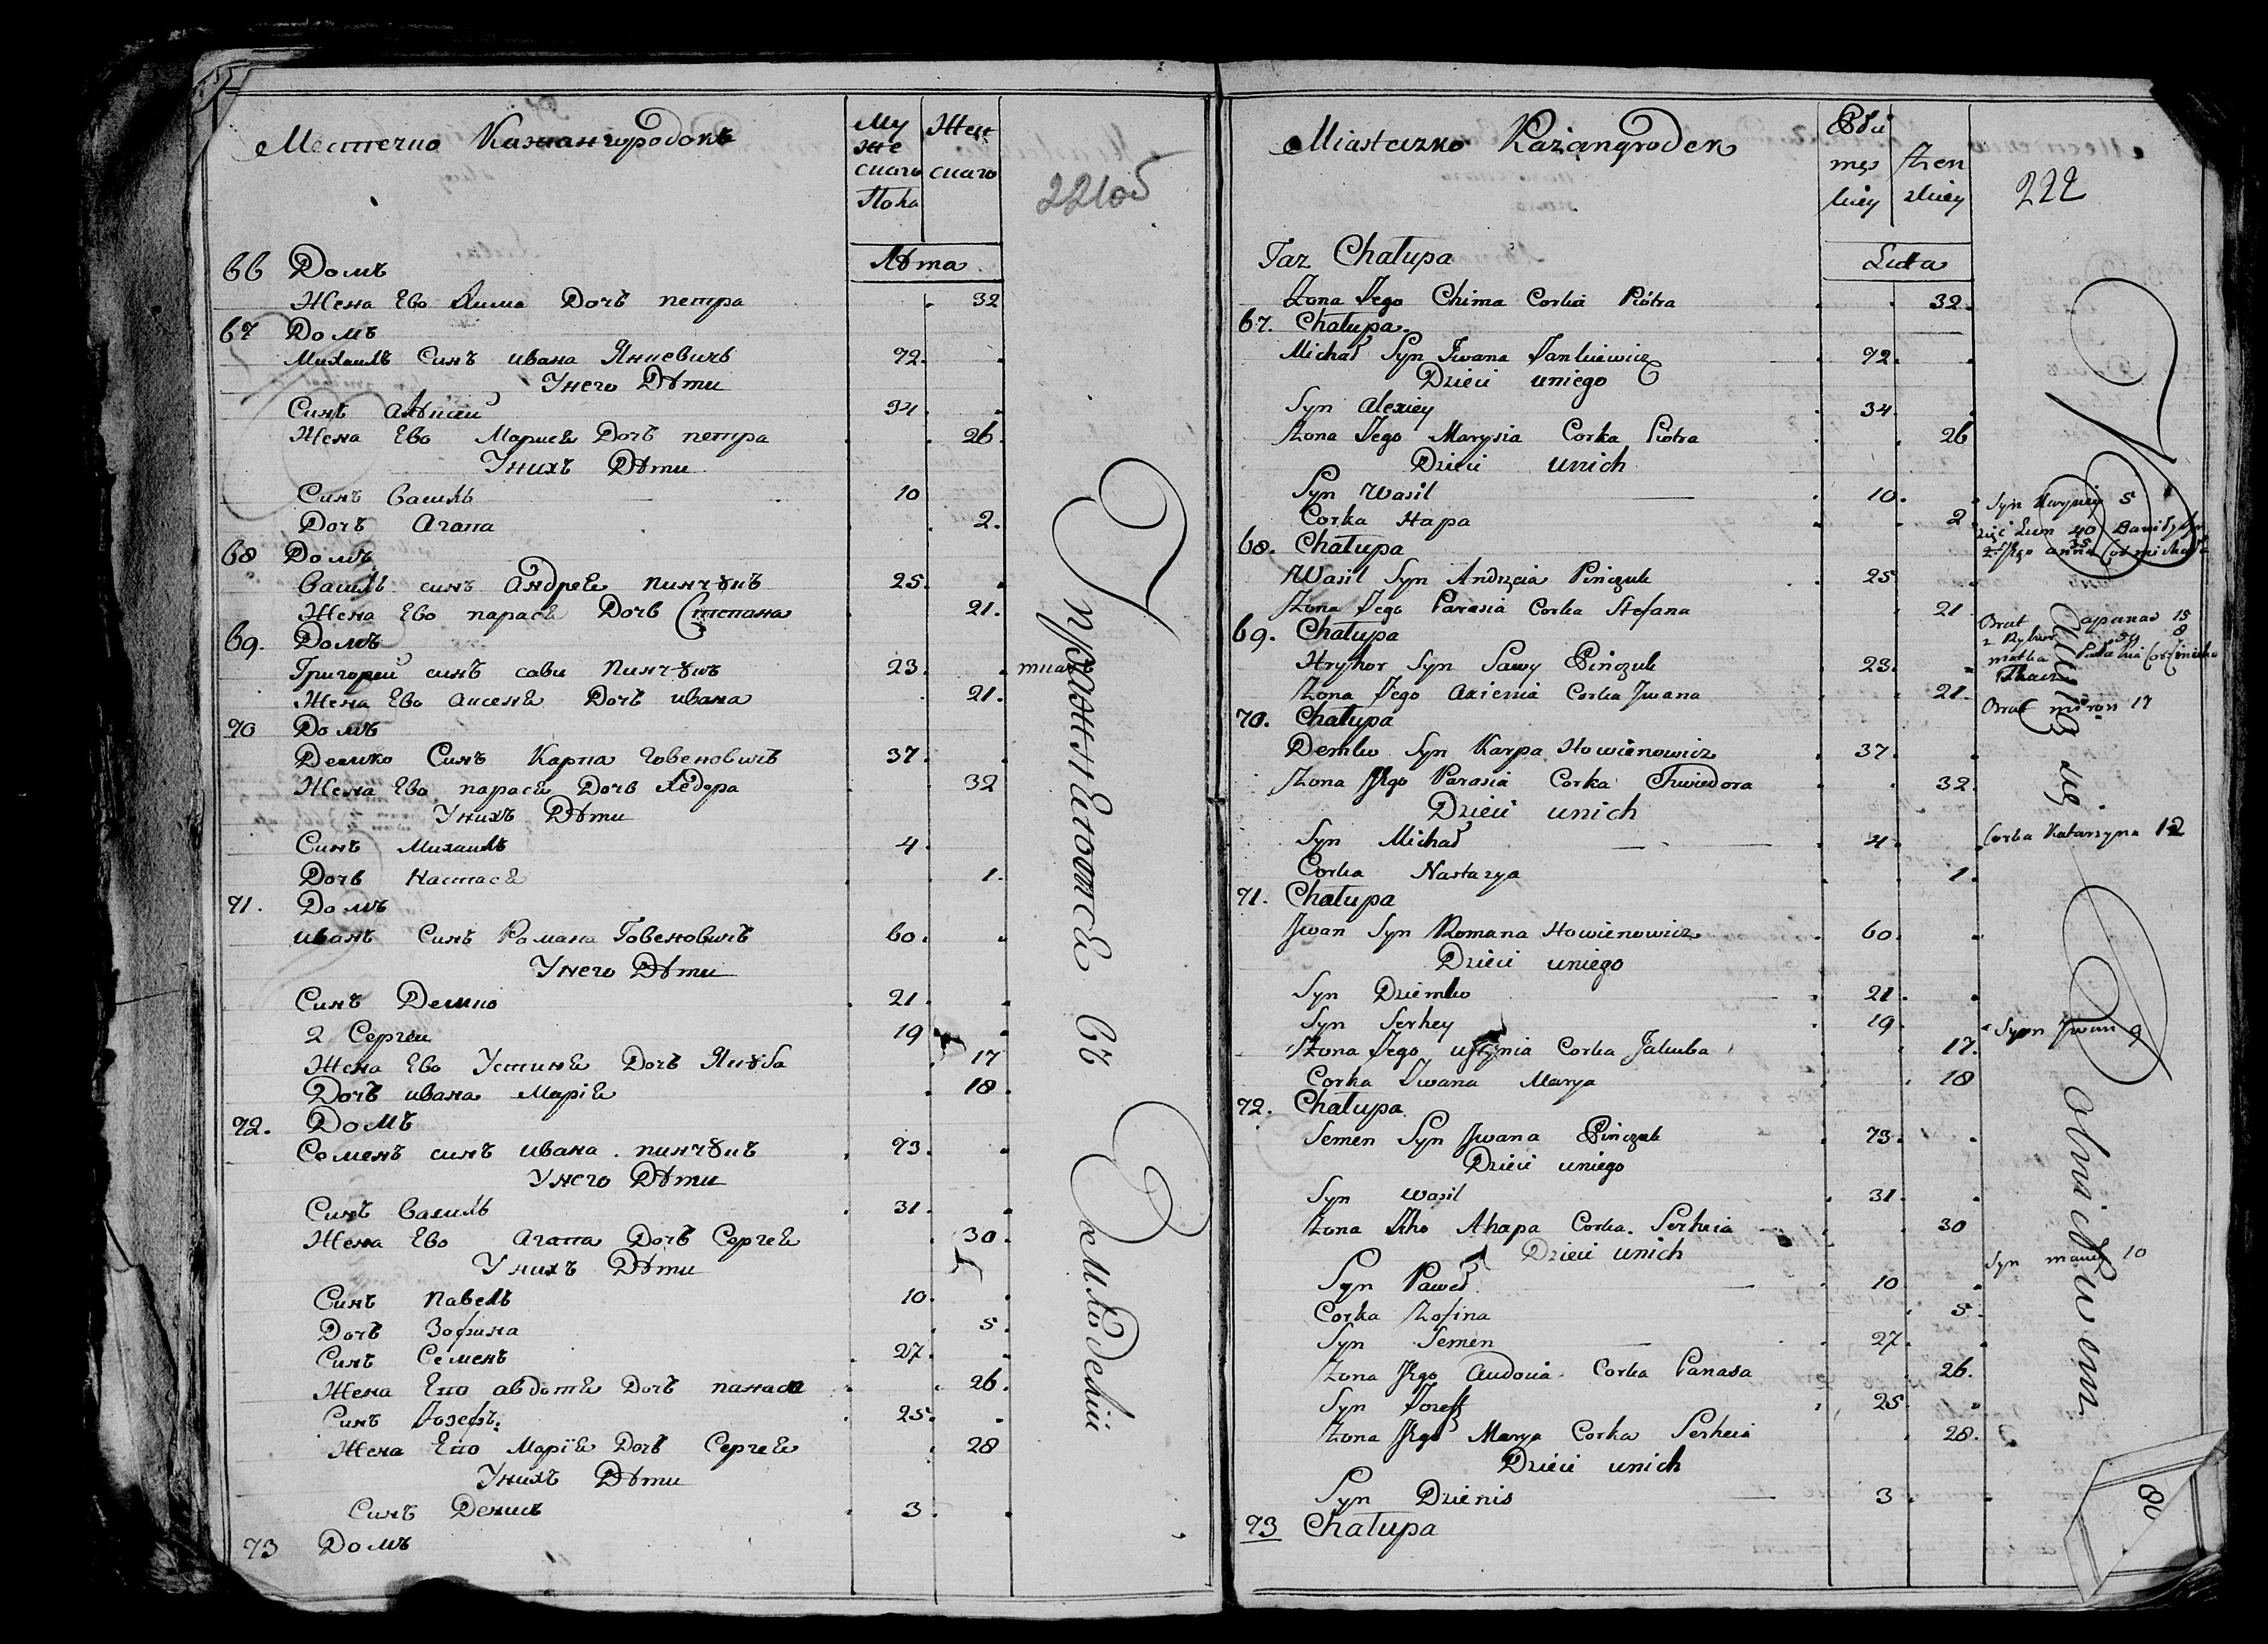 Местечко Кажангородокъ
Му
же
скаго
Пола
Жен
скаго
221об
Лѣта
66 Домъ
Жена Ево Хима Дочъ петра 32
67 Домъ
Михаилъ Синъ ивана Янкевичъ 72
Унего Дѣти
Синъ Алѣксѣй 34
Жена Ево Марисѣ Дочъ петра 26
Унихъ Дѣти
Синъ Василь 10
Дочъ Агапа 2
68 Домъ
Василь синъ Андреѣ пинчукъ 25
Жена Ево парасѣ Дочъ Степана 21
69. Домъ
Григорей синъ сави пинчукъ 23
Жена Ево аксенѣ Дочъ ивана 21
70 Домъ
Демко Синъ Карпа Говеновичъ 37
Жена Ево парасѣ Дочъ Хведора 32
Унихъ Дѣти
Синъ Михаилъ 4
Дочъ Настасѣ 1
71. Домъ
иванъ Синъ Романа Говеновичъ 60
Унего Дѣти
Синъ Демко 21
2 Сергеи 19
Жена Ево Устинѣ Дочъ Якуба 17
Дочъ ивана Маріѣ 18
72. Домъ
Семенъ синъ ивана пинчукъ 73
Унего Дѣти
Синъ Василь 31
Жена Ево Агапа Дочъ Сергеѣ 30
Унихъ Дѣти
Синъ Павелъ 10
Дочъ Зофина 5
Синъ Семенъ 27
Жена Ево авдотѣ Дочъ панаса 26
Синъ Іозефъ 25
Жена Ево Маріѣ Дочъ Сергеѣ 28
Унихъ Дѣти
Синъ Денисъ 3
73 Домъ
Miasteczko Każangrodek
Płci
męs
kiey
Żen
skiey
222
Lata
Taz Chałupa
Żona Jego Chima Corka Piotra 32
67. Chałupa
Michał Syn Jwana Jankiewicz 72
Dzieci uniego
Syn Alexiey 34
Żona Jego Marysia Corka Piotra 26
Dzieci unich
Syn Wasil 10
Corka Hapa 2
68. Chałupa
Wasil Syn Andrzeia Pinczuk 25
Żona Jego Parasia Corka Stefana 21
69. Chałupa
Hryhor Syn Sawy Pinczuk 23
Żona Jego Axienia Corka Jwana 21
70. Chałupa
Demko Syn Karpa Howienowicz 37
Żona Jego Parasia Corka Chwiedora 32
Dzieci unich
Syn Michał 4
Corka Nastazya 1
71. Chałupa
Jwan Syn Romana Howienowicz 60
Dzieci uniego
Syn Dziemko 21
Syn Serhey 19
Żona Jego Ustynia Corka Jakuba 17
Corka Jwana Marya 18
72. Chałupa
Semen Syn Jwana Pinczuk 73
Dzieci uniego
Syn Wasil 31
Żona Jeho Ahapa Corka Serheia 30
Dzieci unich
Syn Paweł 10
Corka Zofina 5
Syn Semen 27
Żona Jego Audocia Corka Panasa 26
Syn Jozeff 25
Żona Jego Marya Corka Serheia 28
Dzieci unich
Syn Dzienis 3
73 Chałupa
Brat Miron 17
Corka Katarzyna 12
Syn Jwan 9
Syn 10
80